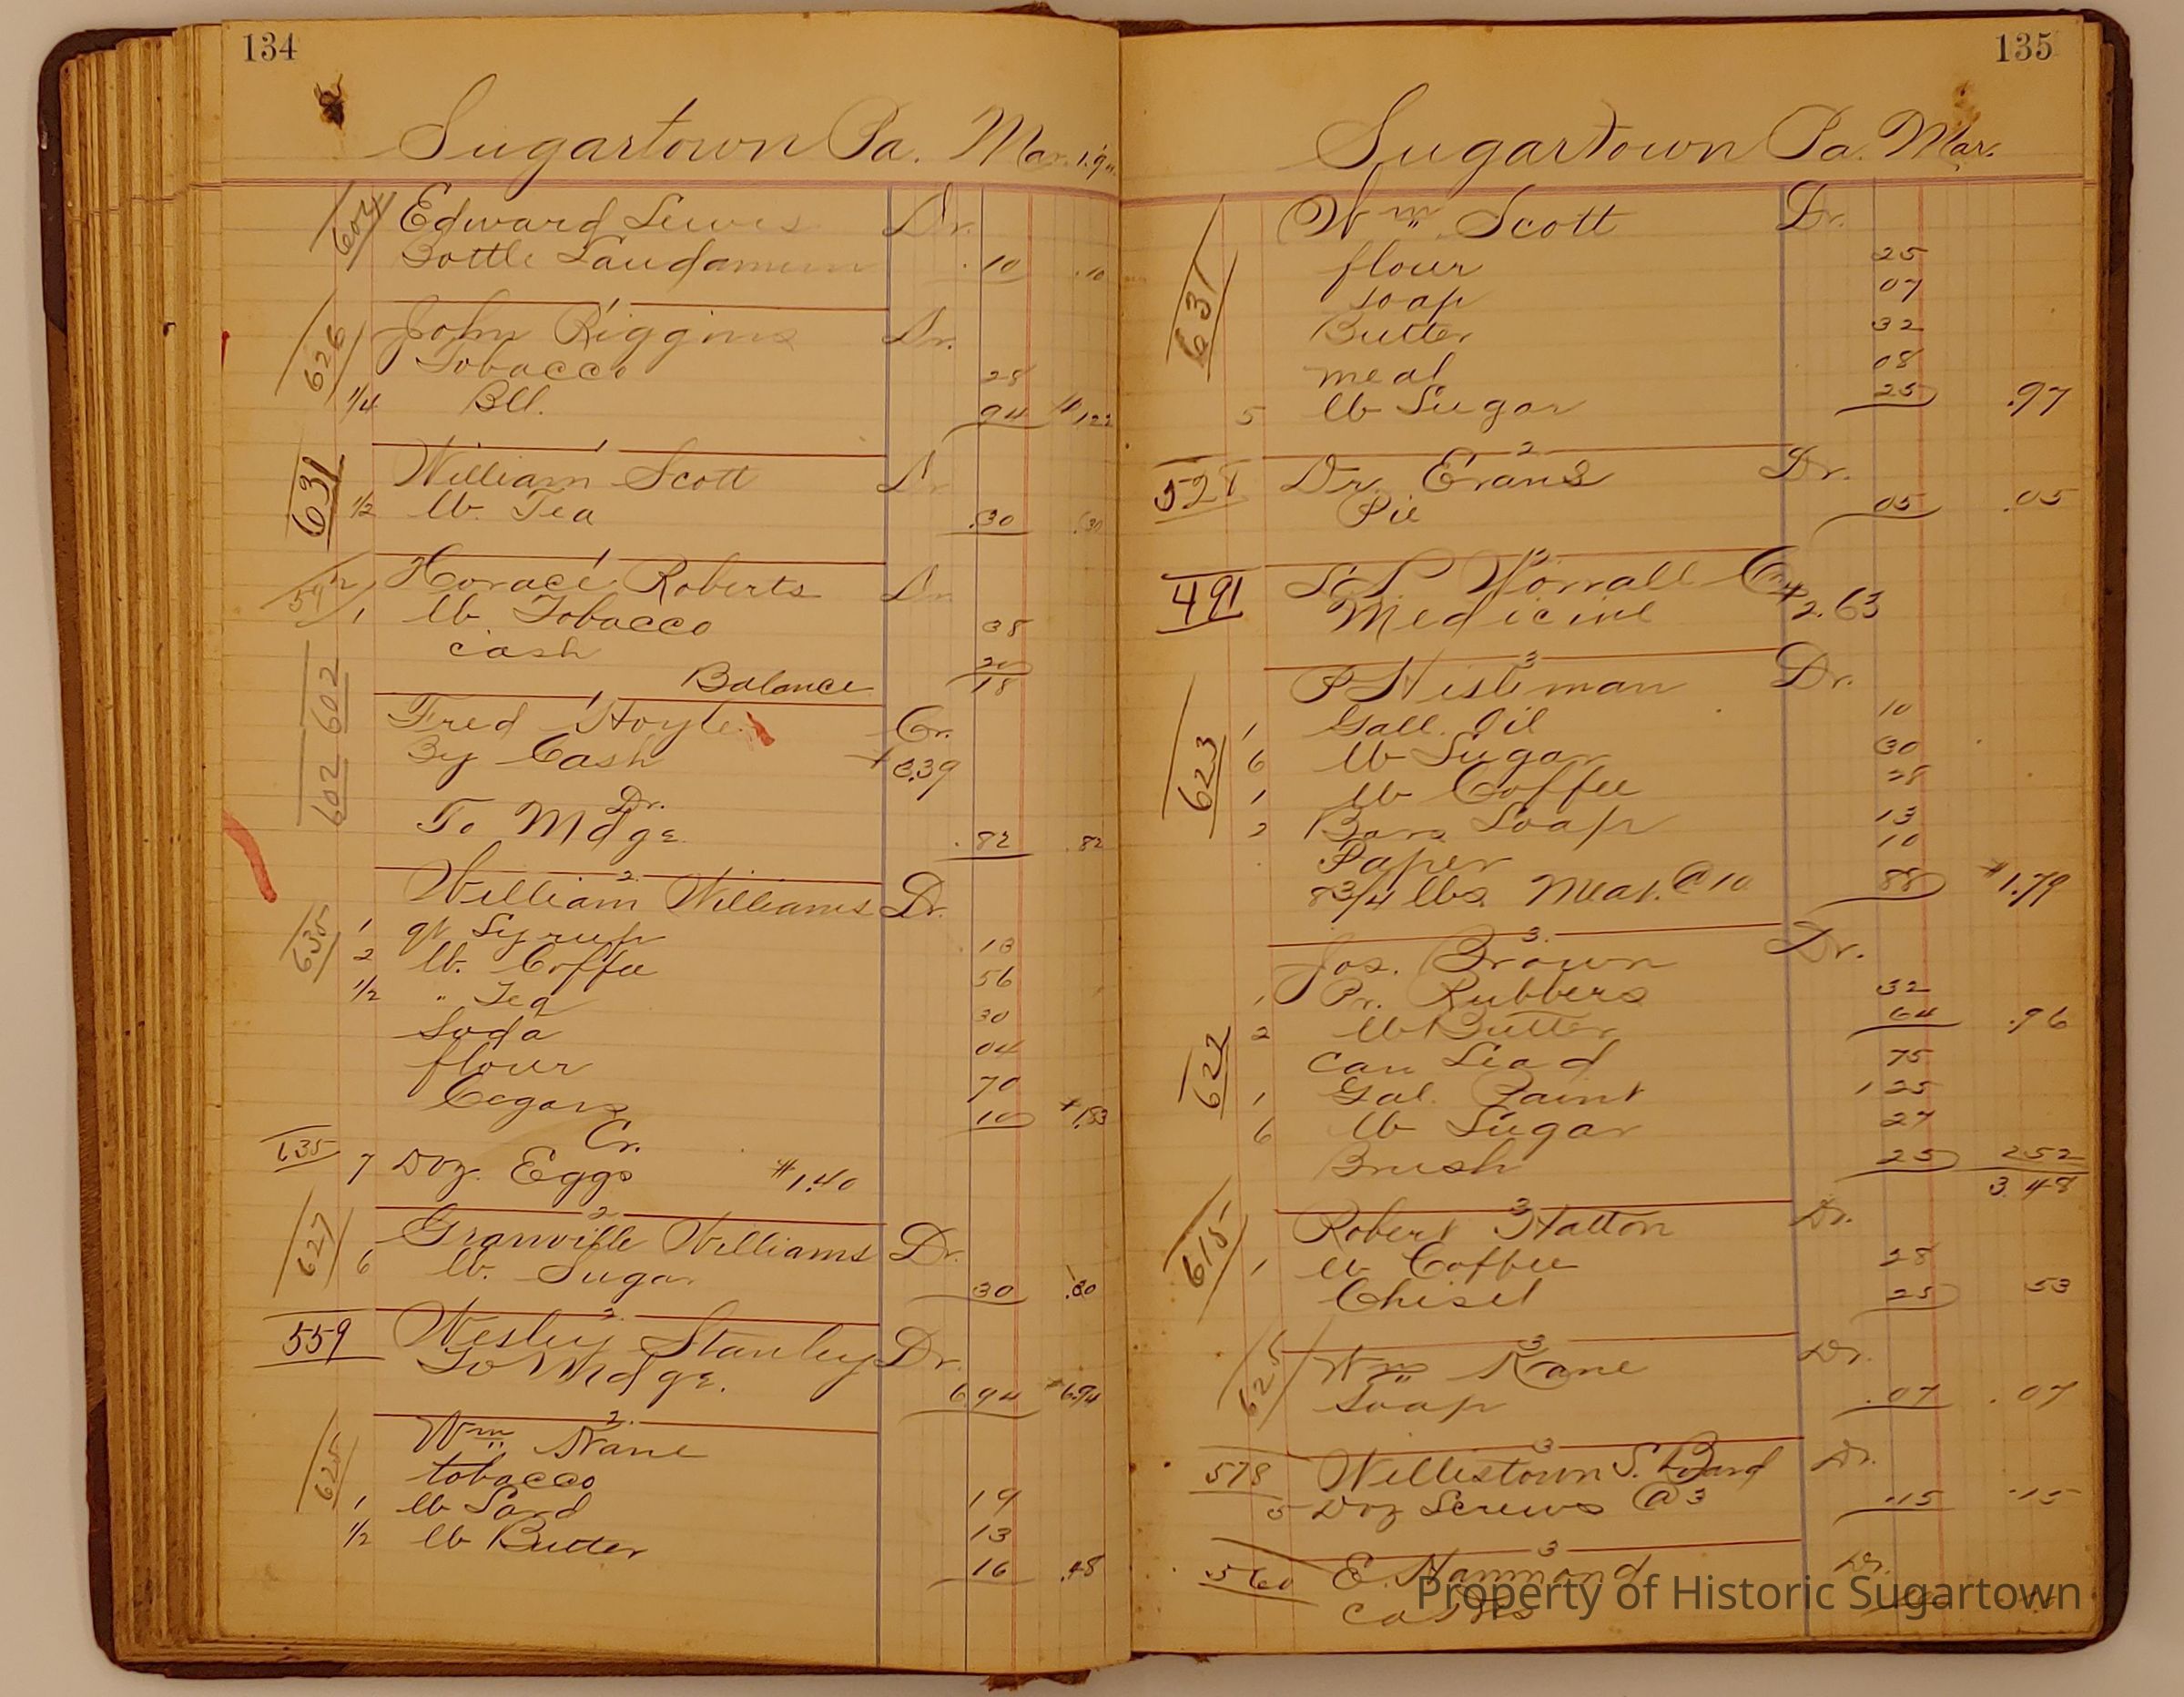 134
Sugartown Pa. Mar. 1.
602 Edward Lewis Dr.
Bottle Laudanum .10 .10
1
626 John Riggins Dr.
Tobacco 28
1/4 Bll. 94 $1.22
1
631 William Scott Dr
1/2 lb. Tea .30 .30
1
592 Horace Roberts Dr
1 lb Tobacco 38
cash 20
Balance 18
1
602 602 Fred Hoyle Cr.
By Cash $3.39
Dr.
To Mdge. .82 .82
2
635 William Williams Dr.
1 qt Syrup 13
2 lb. Coffee 56
1/2 " Tea 30
Soda 04
flour 70
Cegars 10 $1.83
Cr.
635 7 Doz. Eggs $1.40
2
627 Granville Williams Dr.
6 lb. Sugar 30 .30
2
559 Wesley Stanley Dr.
To Mdge. 6.94 $6.94
2.
625 Wm Kane
tobacco 19
1 lb Lard 13
1/2 lb Butter 16 .48
135
Sugartown Pa. Mar.
631 Wm Scott Dr.
flour 25
soap 07
Butter 32
meal 08
5 lb Sugar 25 .97
2
Dr. Evans Dr.
Pie 05 .05
491 Worrall Cr. $2.63
Medicine
3
623 Dr.
1 Gall. Oil 10
6 lb Sugar 30
1 lb Coffee 28
2 Bars Soap 13
Paper 10
8 3/4 lbs. Meat. @ 10 88 $1.79
3.
622 Jos. Brown Dr.
1 Pr. Rubbers 32
2 lb Butter 64 .96
Can Lead 75
1 Gal. Paint 1 25
6 lb Sugar 27
Brush 25 2 52
3 48
3
615 Robert Hatton Dr.
1 lb Coffee 28
Chisel 25 53
3
625 Wm Kane Dr.
Soap .07 .07
3
578 Willistown S. Board Dr.
5 Doz Screws @ 3 .15 .15
3
560 E. Hammond Dr.
Property of Historic Sugartown